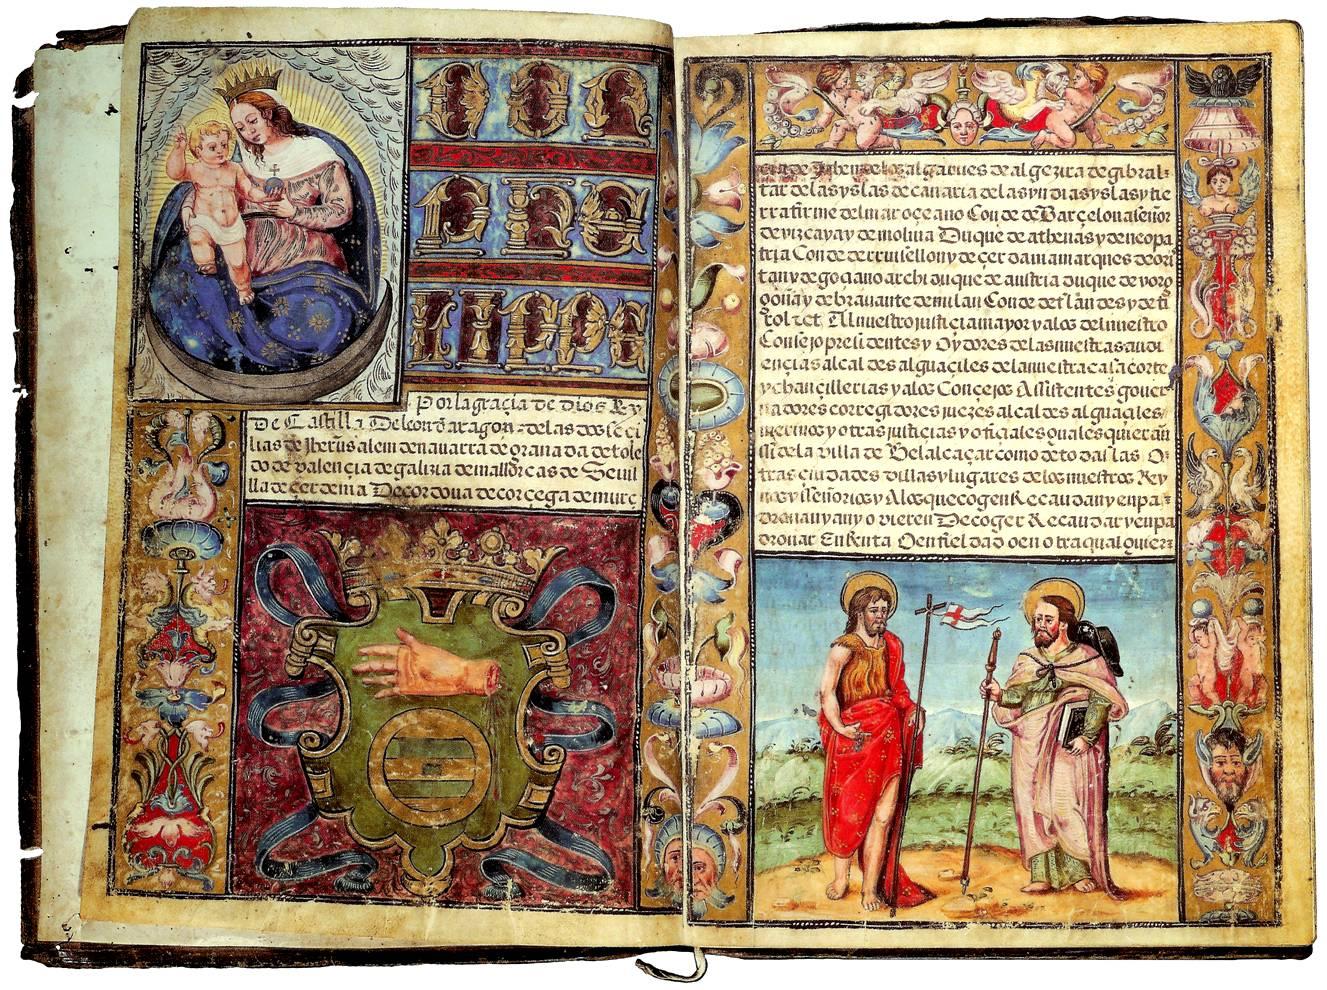 DON PHE
LIPE SE
GVNDO
Por la graçia de dios Rey
De Castill a De leon d aragon de las dos se çi
lias de Jherusalem de nauarra de granada de tole
do de valençia de galizia de mallorcas de Seuil
lla de çerdenia De cordoua de corçega de murc
de los algarues de algezira de gibral
tar de las yslas de canaria de las yndias yslas y tie
rra firme del mar oçeano Conde de Barçelona señor
de vizcaya y de molina Duque de athenas y de neopa
tria Conde de rruisellon y de çerdania marques de ori
tan y de goçiano archiduque de austria duque de vorg
goña y de brauante de milan Conde de flandes y de ti
rol zet Al nuestro justiçia mayor y a los del nuestro
Consejo presidentes y Oydores de las nuestras audi
ençias alcaldes alguaçiles de la nuestra casa corte
y chançillerias y a los Conçejos Assistentes gouer
nadores corregidores juezes alcaldes alguaçiles
merinos y otras justiçias y ofiçiales quales quier an
si de la villa de Belalcaçar como de todas las O
tras ciudades villas y lugares de los nuestros Rey
nos y señorios y A los que cogen Recaudan y enpa
dronan y an y o vieren De coger Recaudar y enpa
dronar En Renta O en fieldad o en otra qualquier